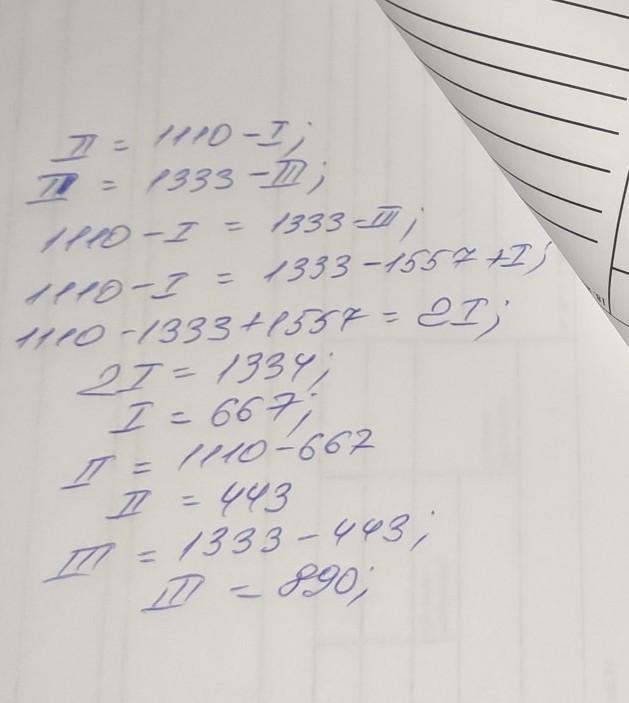 II = 1110 - I;
II = 1333 - III;
1110 - I = 1333 - III;
1110 - I = 1333 - 1557 + I;
1110 - 1333 + 1557 = 2I;
2I = 1334;
I = 667;
II = 1110 - 667
II = 443
III = 1333 - 443;
III = 890;